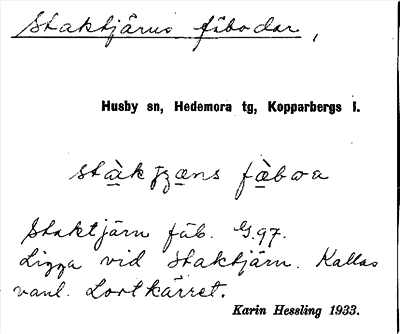 Staktjärns fäbodar,
Husby sn, Hedemora tg, Kopparbergs l.
stàkjzans fàboa
Staktjärn fäb. G.97.
Ligga vid Staktjärn. Kallas
vanl. Lortkärret.
Karin Hessling 1933.